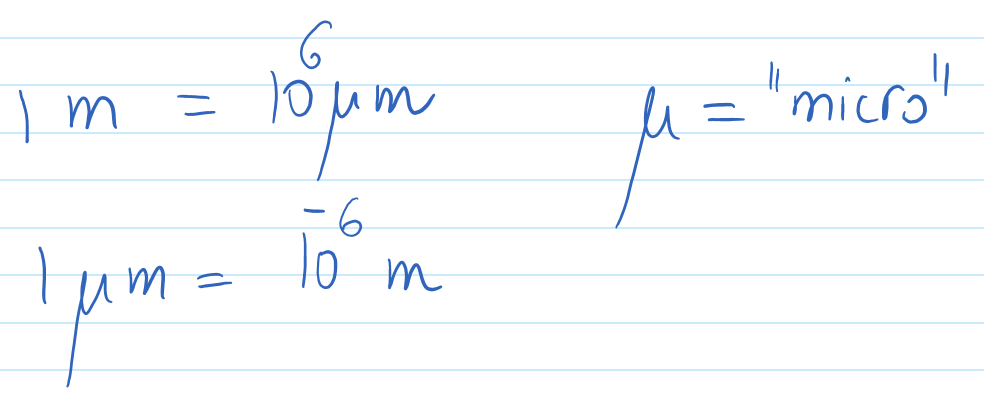 1 m = 10⁶ μm    μ = "micro"
1 μm = 10⁻⁶ m